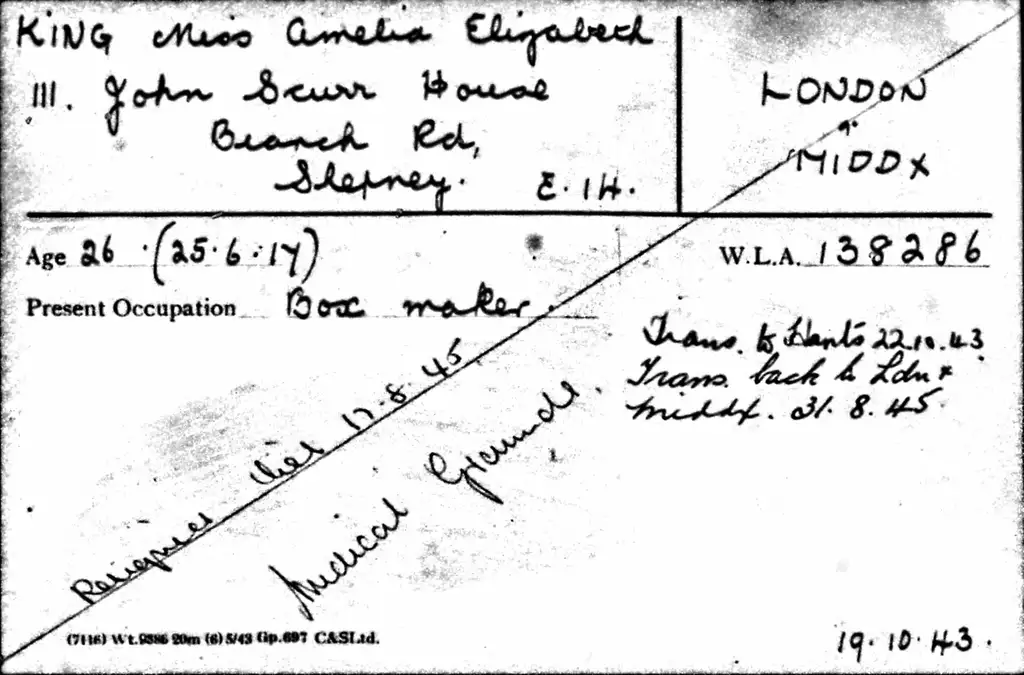 KING Miss Amelia Elizabeth
111. John Scurr House
Branch Rd,
Stepney. E.14.
LONDON
&
MIDDX
Age 26 . (25.6.17)
W.L.A. 138286
Present Occupation Box maker.
Trans. to Hants 22.10.43
Trans. back to Ldn &
Middx. 31.8.45.
Resigned 17.8.45
Medical Grounds.
(7116) Wt.9386 20m (6) 5/43 Gp.697 C&SLtd.
19.10.43.